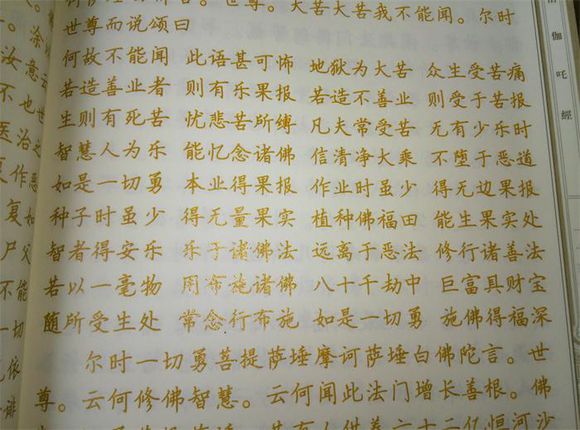 世尊。大苦大苦我不能闻。尔时
世尊而说颂曰
何故不能闻 此语甚可怖 地狱为大苦 众生受苦痛
若造善业者 则有乐果报 若造不善业 则受于苦报
生则有死苦 忧悲苦所缚 凡夫常受苦 无有少乐时
智慧人为乐 能忆念诸佛 信清净大乘 不堕于恶道
如是一切勇 本业得果报 作业时虽少 得无边果报
种子时虽少 得无量果实 植种佛福田 能生果实处
智者得安乐 乐于诸佛法 远离于恶法 修行诸善法
若以一毫物 用布施诸佛 八十千劫中 巨富具财宝
随所受生处 常念行布施 如是一切勇 施佛得福深
尔时一切勇菩提萨埵摩诃萨埵白佛陀言。世
尊。云何修佛智慧。云何闻此法门增长善根。佛
有人供养六十二亿恒河沙
伽
吒
經